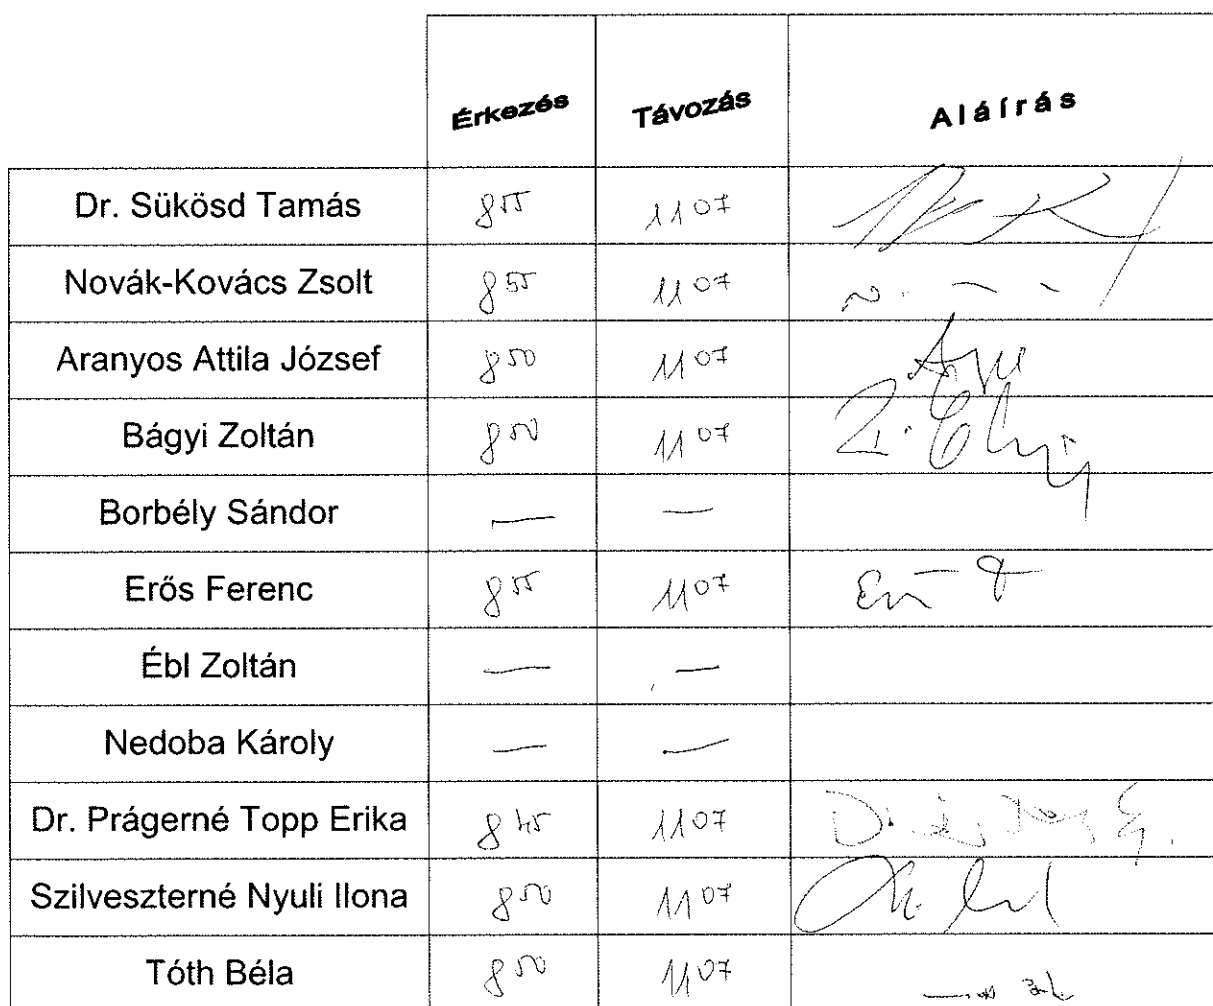 Érkezés Távozás Aláírás
Dr. Sükösd Tamás 8 55 11 07
Novák-Kovács Zsolt 8 55 11 07
Aranyos Attila József 8 50 11 07
Bágyi Zoltán 8 50 11 07
Borbély Sándor — —
Erős Ferenc 8 55 11 07
Ébl Zoltán — —
Nedoba Károly — —
Dr. Prágerné Topp Erika 8 45 11 07
Szilveszterné Nyuli Ilona 8 50 11 07
Tóth Béla 8 50 11 07